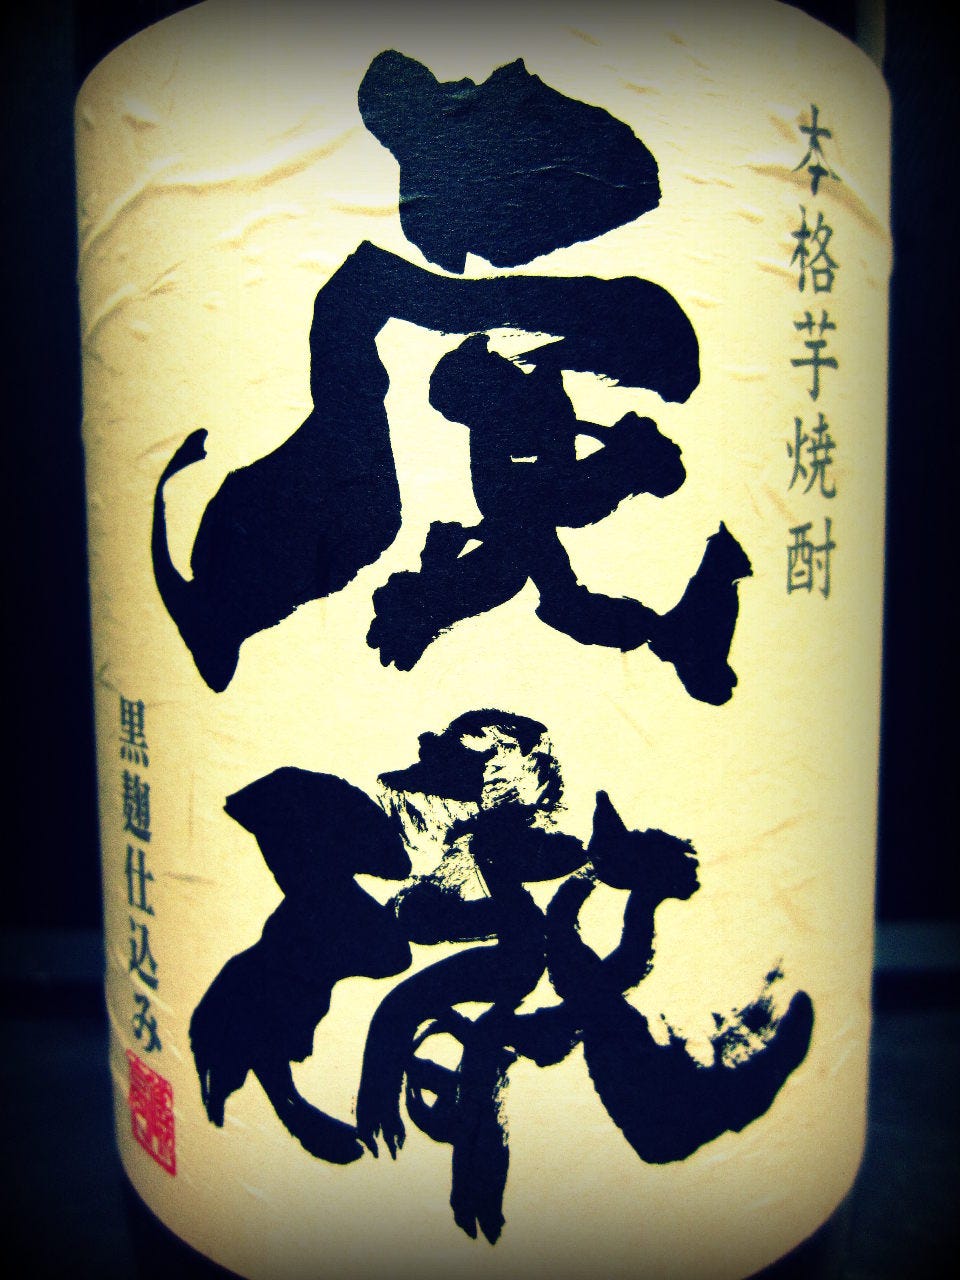 本格芋焼酎
虎徹
黒麹仕込み